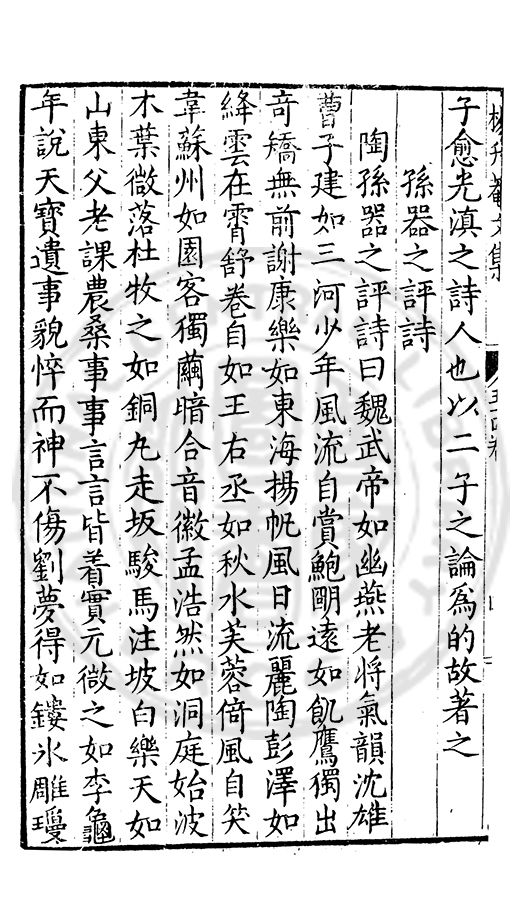 楊升菴文集 五十四卷
子愈光滇之詩人也以二子之論為的故著之
孫器之評詩
陶孫器之評詩曰魏武帝如幽燕老将氣韻沈雄
曹子建如三河少年風流自賞鮑明遠如飢鷹獨出
奇矯無前謝康樂如東海揚帆風日流麗陶彭澤如
絳雲在霄舒卷自如王右丞如秋水芙蓉倚風自笑
韋蘇州如園客獨繭暗合音徽孟浩然如洞庭始波
木葉微落杜牧之如銅丸走坂駿馬注坡白樂天如
山東父老課農桑事事言言皆着實元微之如李龜
年說天寶遺事貌悴而神不傷劉夢得如鏤氷雕瓊